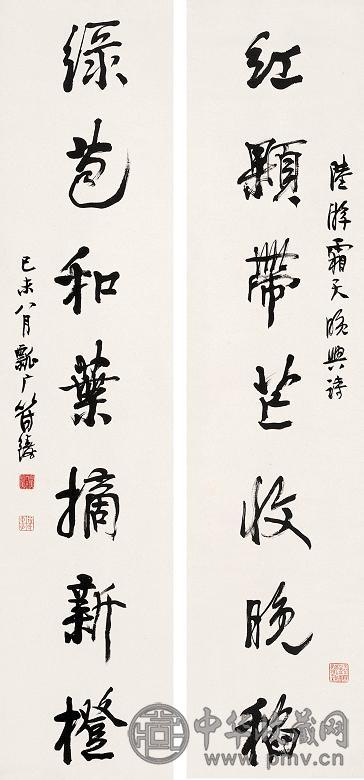 紅顆帶芒收晚稻
陸游霜天晚興詩
綠苞和葉摘新橙
己未八月瓢广
中华收藏网
www.pmv.cn